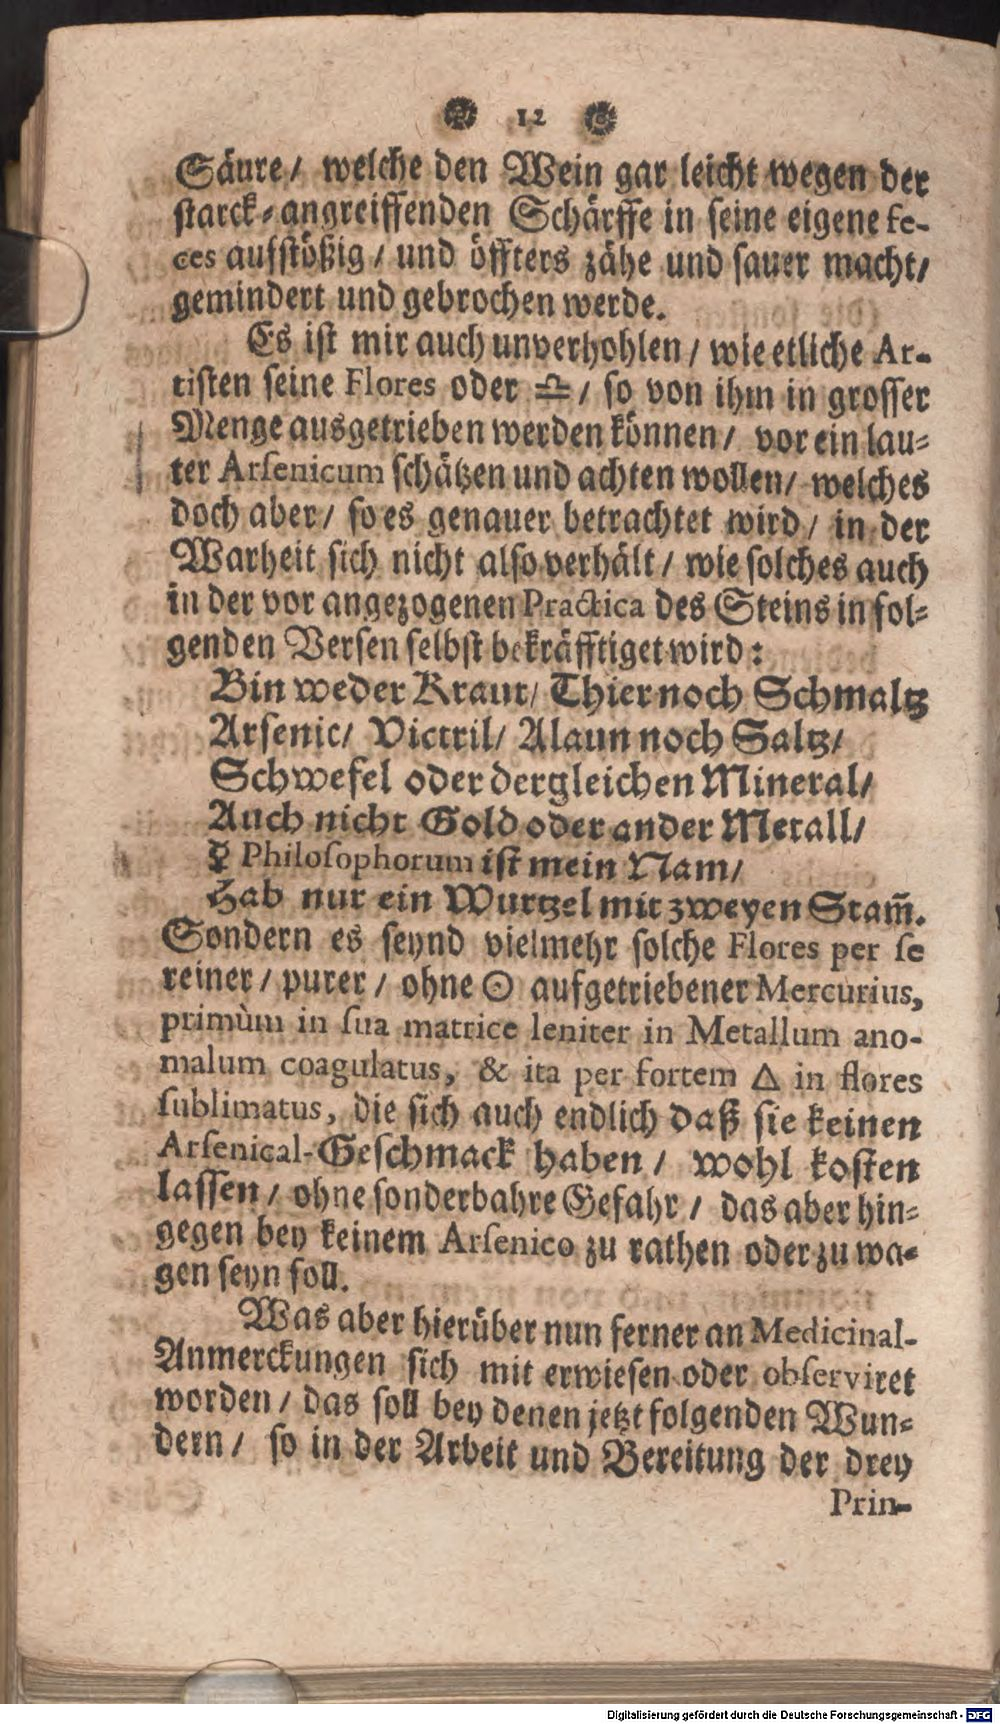 12
Säure/ welche den Wein gar leicht wegen der
starck-angreiffenden Schärffe in seine eigene fe-
ces aufstößig/ und öffters zähe und sauer macht/
gemindert und gebrochen werde.
Es ist mir auch unverhohlen/ wie etliche Ar-
tisten seine Flores oder ♎/ so von ihm in grosser
Menge ausgetrieben werden können/ vor ein lau-
ter Arsenicum schätzen und achten wollen/ welches
doch aber/ so es genauer betrachtet wird/ in der
Warheit sich nicht also verhält/ wie solches auch
in der vor angezogenen Practica des Steins in fol-
genden Versen selbst bekräfftiget wird:
Bin weder Kraut/ Thier noch Schmaltz
Arsenic/ Victril/ Alaun noch Saltz/
Schwefel oder dergleichen Mineral/
Auch nicht Gold oder ander Metall/
☿ Philosophorum ist mein Nam/
Hab nur ein Wurtzel mit zweyen Stam̃.
Sondern es seynd vielmehr solche Flores per se
reiner/ purer/ ohne ☉ aufgetriebener Mercurius,
primùm in sua matrice leniter in Metallum ano-
malum coagulatus, & ita per fortem △ in flores
sublimatus, die sich auch endlich daß sie keinen
Arsenical-Geschmack haben/ wohl kosten
lassen/ ohne sonderbahre Gefahr/ das aber hin-
gegen bey keinem Arsenico zu rathen oder zu wa-
gen seyn soll.
Was aber hierüber nun ferner an Medicinal-
Anmerckungen sich mit erwiesen oder observiret
worden/ das soll bey denen jetzt folgenden Wun-
dern/ so in der Arbeit und Bereitung der drey
Prin-
Digitalisierung gefördert durch die Deutsche Forschungsgemeinschaft - DFG